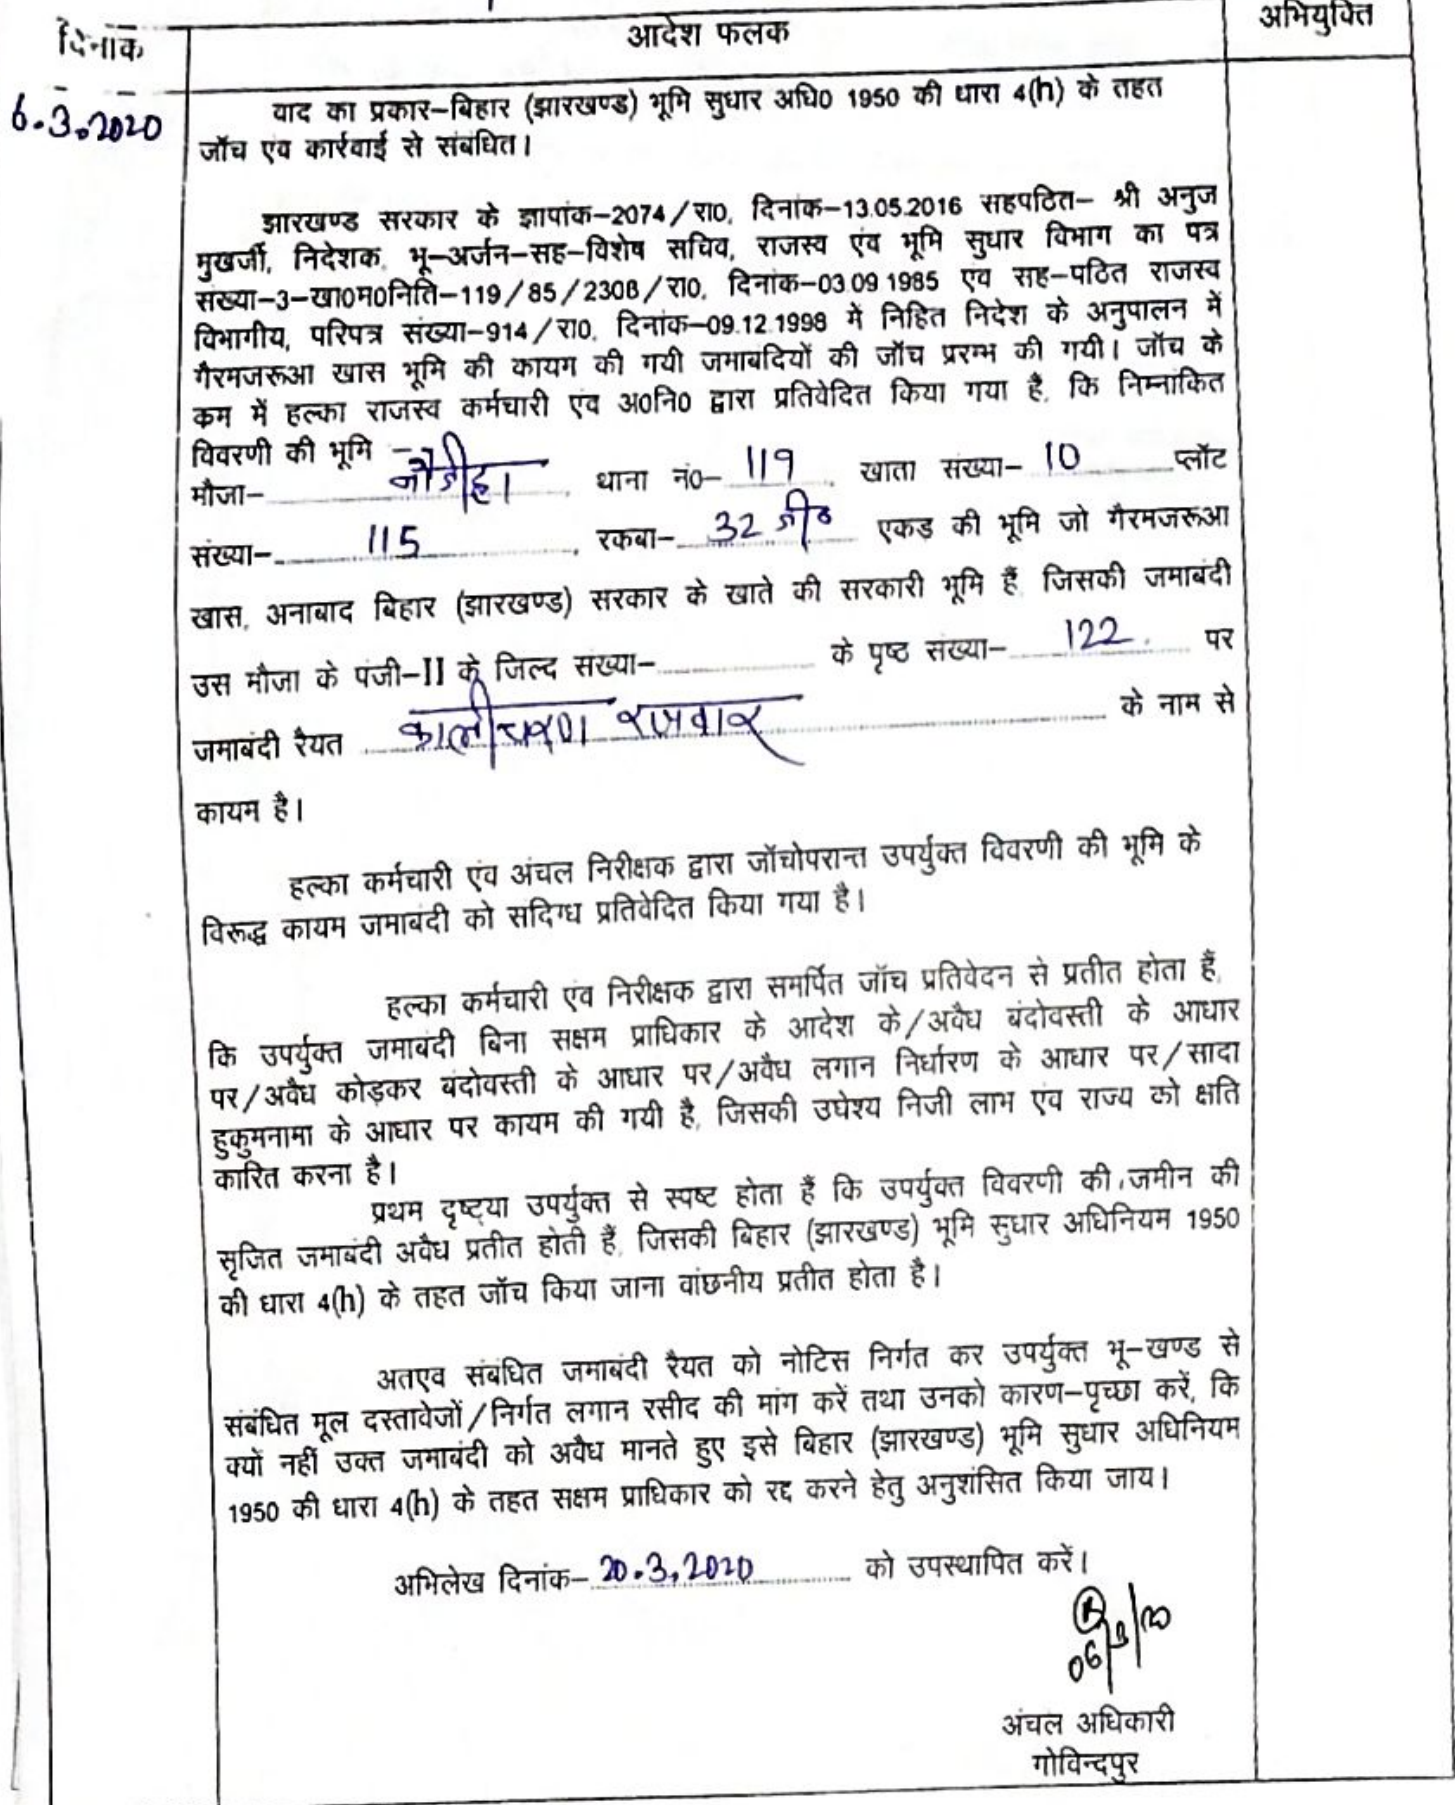 दिनांक
आदेश फलक
अभियुक्ति
6.3.2020
वाद का प्रकार–बिहार (झारखण्ड) भूमि सुधार अधि0 1950 की धारा 4(h) के तहत
जॉच एंव कार्रवाई से संबंधित।
झारखण्ड सरकार के ज्ञापांक–2074/रा0, दिनांक–13.05.2016 सहपठित– श्री अनुज
मुखर्जी, निदेशक, भू–अर्जन–सह–विशेष सचिव, राजस्व एंव भूमि सुधार विभाग का पत्र
संख्या–3–खा0म0निति–119/85/2308/रा0, दिनांक–03.09.1985 एंव सह–पठित राजस्व
विभागीय, परिपत्र संख्या–914/रा0, दिनांक–09.12.1998 में निहित निदेश के अनुपालन में
गैरमजरूआ खास भूमि की कायम की गयी जमाबंदियों की जॉच प्ररम्भ की गयी। जॉच के
कम में हल्का राजस्व कर्मचारी एंव अ0नि0 द्वारा प्रतिवेदित किया गया है, कि निम्नांकित
विवरणी की भूमि –
मौजा– नौडीहा थाना नं0– 119 खाता संख्या– 10 प्लॉट
संख्या– 115, रकबा– 32 डी0 एकड की भूमि जो गैरमजरूआ
खास, अनाबाद बिहार (झारखण्ड) सरकार के खाते की सरकारी भूमि हैं, जिसकी जमाबंदी
उस मौजा के पंजी–II के जिल्द संख्या– के पृष्ठ संख्या– 122. पर
जमाबंदी रैयत कालीचरण रजवार के नाम से
कायम है।
हल्का कर्मचारी एंव अंचल निरीक्षक द्वारा जॉचोपरान्त उपर्युक्त विवरणी की भूमि के
विरूद्ध कायम जमाबंदी को संदिग्ध प्रतिवेदित किया गया है।
हल्का कर्मचारी एंव निरीक्षक द्वारा समर्पित जॉच प्रतिवेदन से प्रतीत होता हैं,
कि उपर्युक्त जमाबंदी बिना सक्षम प्राधिकार के आदेश के/अवैध बंदोवस्ती के आधार
पर/अवैध कोड़कर बंदोवस्ती के आधार पर/अवैध लगान निर्धारण के आधार पर/सादा
हुकुमनामा के आधार पर कायम की गयी है, जिसकी उघेश्य निजी लाभ एंव राज्य को क्षति
कारित करना है।
प्रथम दृष्ट्या उपर्युक्त से स्पष्ट होता हैं कि उपर्युक्त विवरणी की जमीन की
सृजित जमाबंदी अवैध प्रतीत होती हैं, जिसकी बिहार (झारखण्ड) भूमि सुधार अधिनियम 1950
की धारा 4(h) के तहत जॉच किया जाना वांछनीय प्रतीत होता है।
अतएव संबंधित जमाबंदी रैयत को नोटिस निर्गत कर उपर्युक्त भू–खण्ड से
संबंधित मूल दस्तावेजों/निर्गत लगान रसीद की मांग करें तथा उनको कारण–पृच्छा करें, कि
क्यों नहीं उक्त जमाबंदी को अवैध मानते हुए इसे बिहार (झारखण्ड) भूमि सुधार अधिनियम
1950 की धारा 4(h) के तहत सक्षम प्राधिकार को रद्द करने हेतु अनुशंसित किया जाय।
अभिलेख दिनांक– 20.3.2020 को उपस्थापित करें।
06/3/20
अंचल अधिकारी
गोविन्दपुर